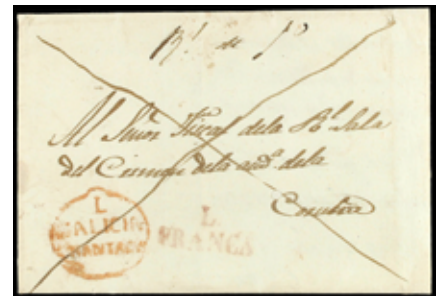 Al Señor Fiscal dela Rl. Sala
del Crimen dela aud.ª dela
Coruña
L
GALICIA
CHANTADA
L.
FRANCA